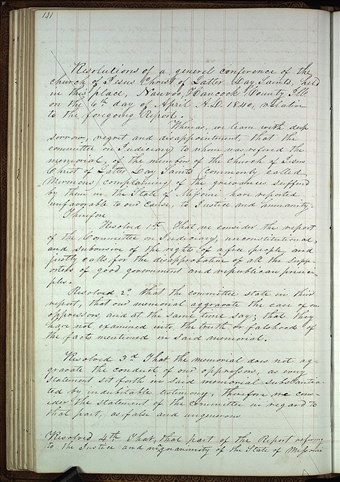 131
Resolutions of a general conference of the
church of Jesus Christ of Latter Day Saints, held
in this place, Nauvoo, Hancock County, Ills
on the 6th day of April A.D. 1840, relative
to the foregoing Report.
Whereas, we learn with deep
sorrow, regret and disappointment, that the
committee on Judiciary to whom was referred the
memorial, of the members of the church of Jesus
Christ of Latter Day Saints, commonly called
Mormons, complaining of the grievances suffered
by them in the State of Missouri, have reported
unfavorable to our cause, to Justice and humanity.
Therefore
Resolved 1st. That we consider the report
of the Committee on Judiciary, unconstitutional
and subversive of the rights of a free people, and
justly calls for the disapprobation of all the supp-
orters of good government and republican princi-
ples.
Resolved 2d that the committee state in their
report, that our memorial aggravate the case of our
oppressors, and at the same time say, that they
have not examined into the truth or falsehood of
the facts mentioned in said memorial.
Resolved 3rd That the memorial does not ag-
gravate the conduct of our oppressors, as every
Statement set forth in said memorial substantia-
ted by indubitable testimony, therefore we con-
sider the statement of the committee in regard to
that part, as false and ungenerous
Resolved 4th That, that part of the Report referring
to the Justice and magnanimity of the State of Missouri